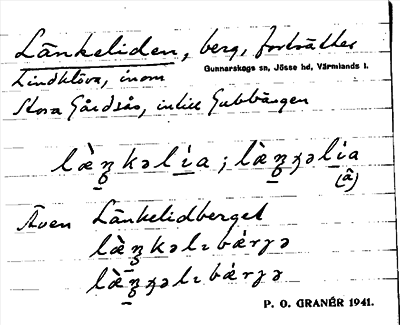 Länkeliden, berg, fortsätter
Gunnarskogs sn, Jösse hd, Värmlands l.
inom
Stora Gårdsås, intill Gubbängen
læ̀ŋ̱kəlía; læ̀ŋ̱ʒəlía
(å)
Även Länkelidberget
læ̀ŋ̱kəlɪbárjə
læ̀ŋ̱ʒəlɪbárjə
P. O. GRANÉR 1941.